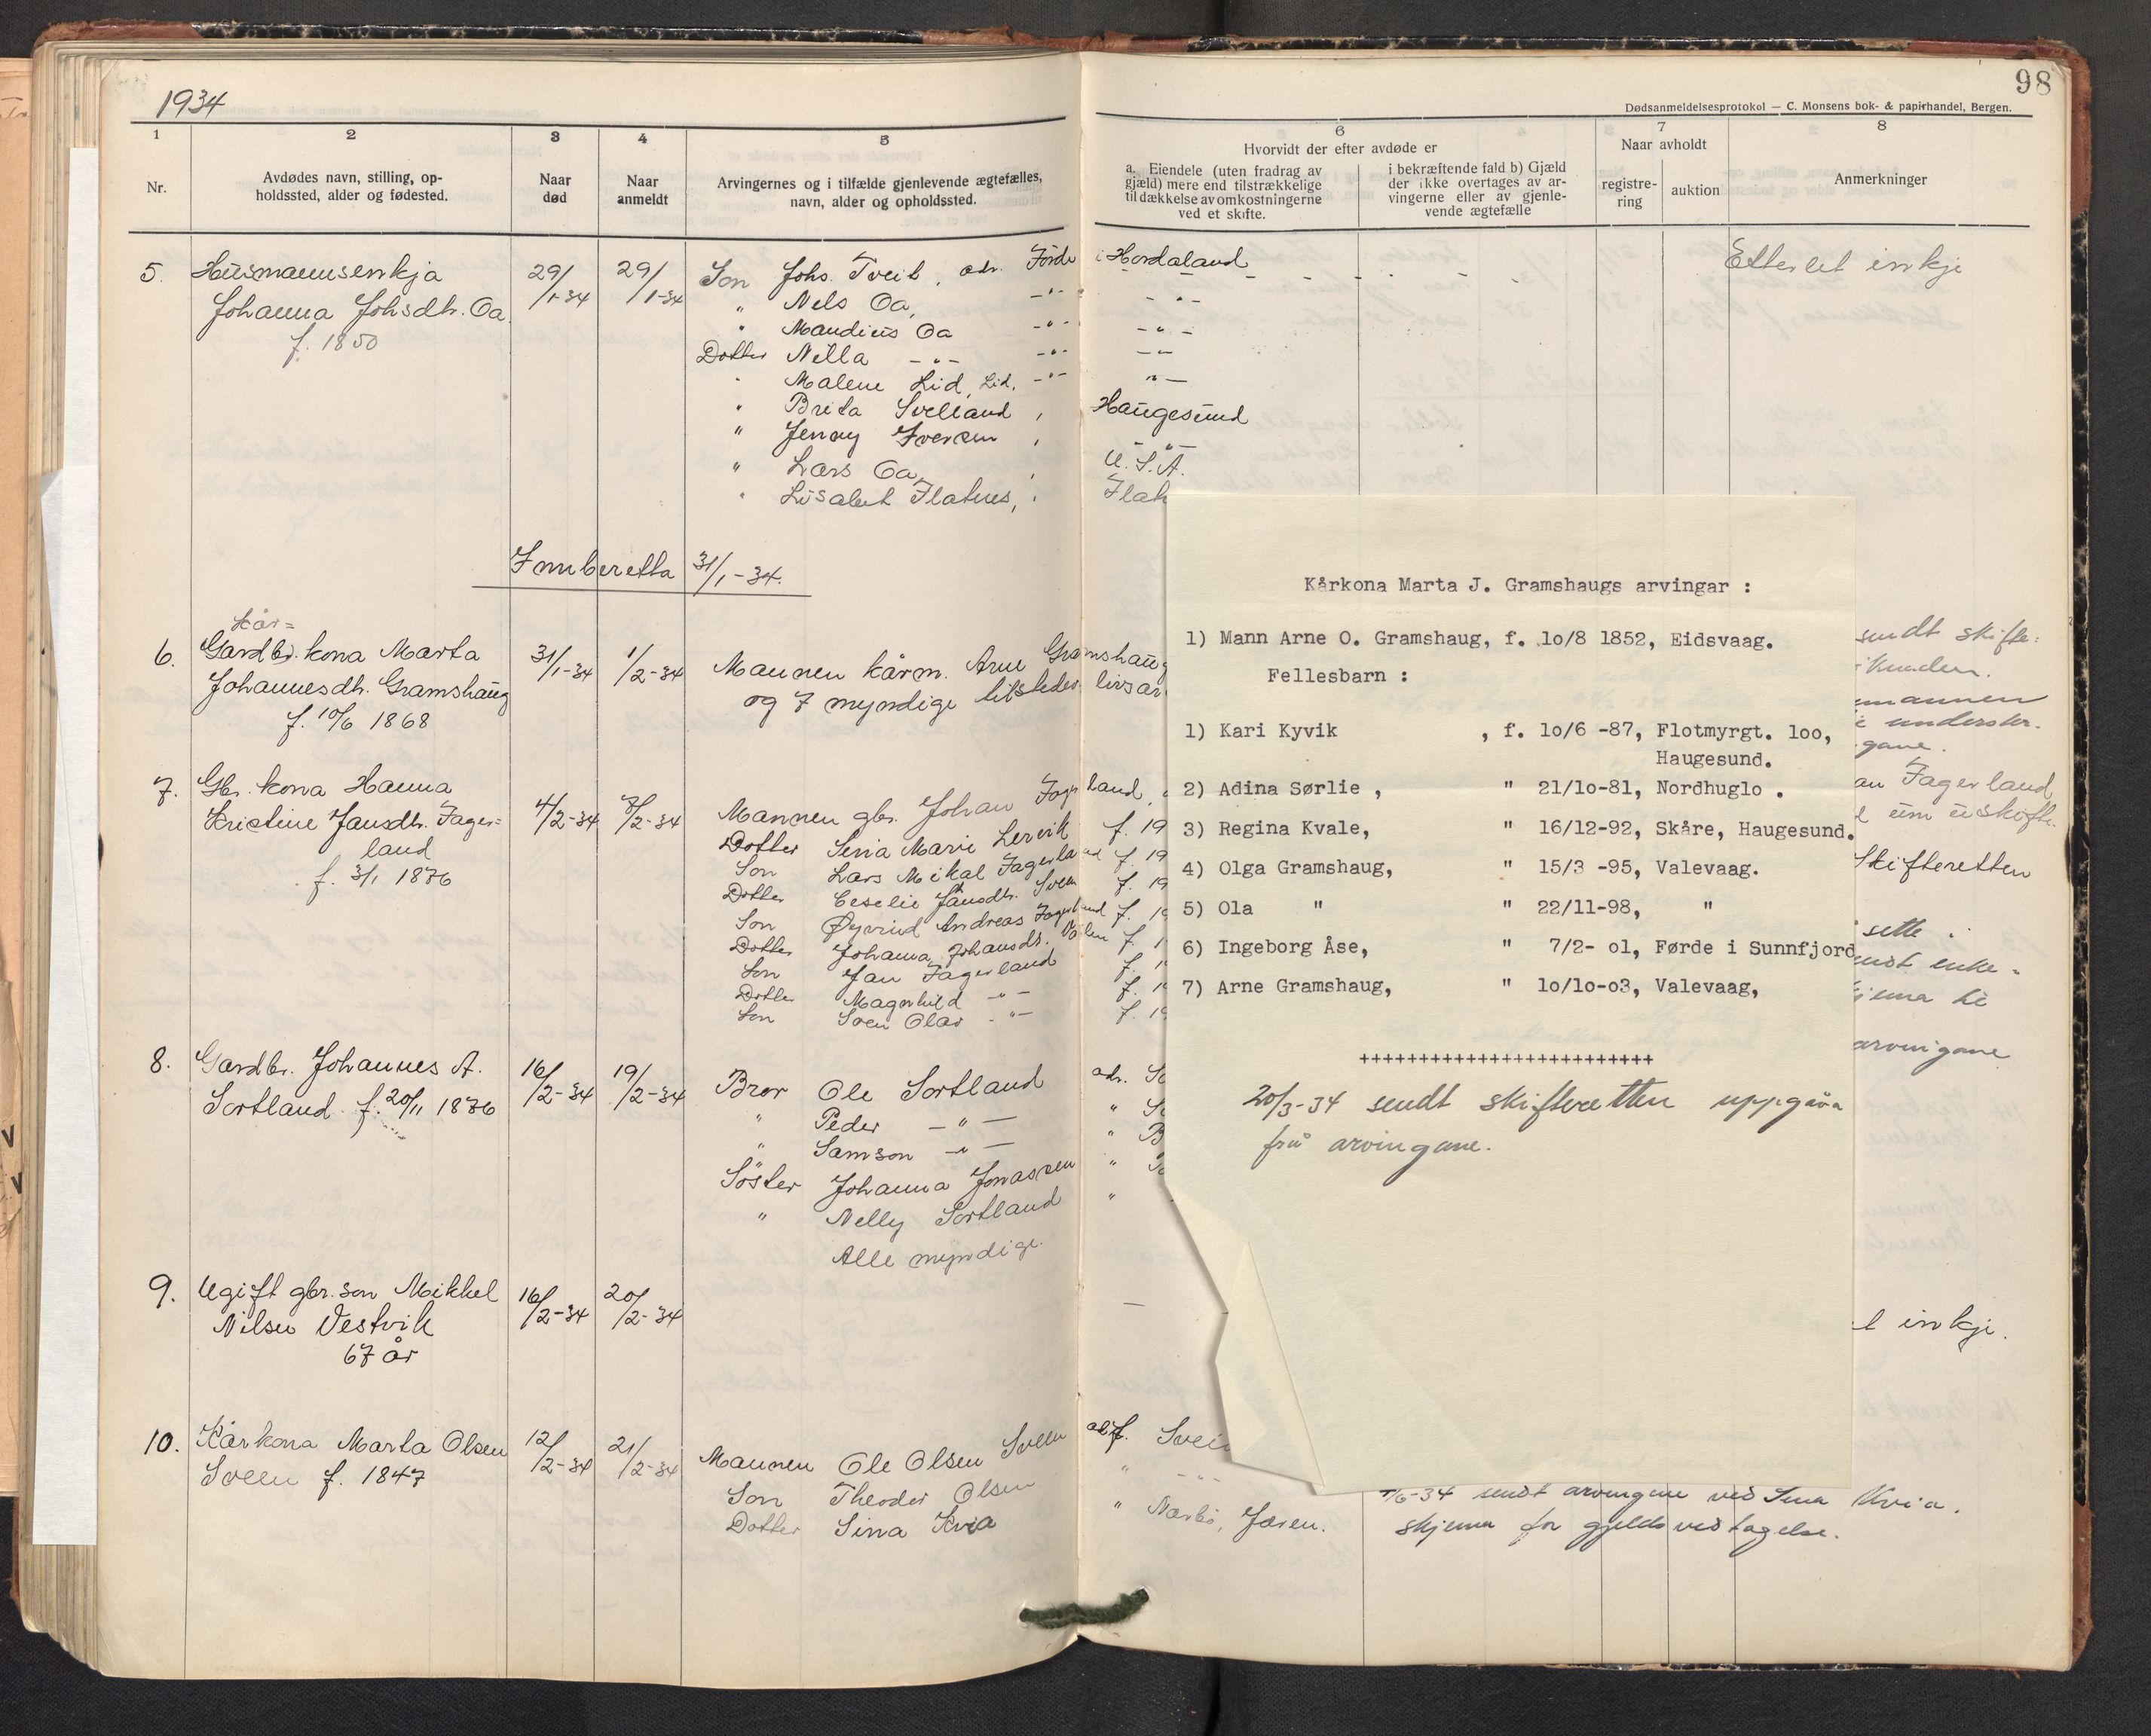 1934
1
2
3
4
5
Nr.
Avdødes navn, stilling, op-
holdssted, alder og fødested.
Naar
død
Naar
anmeldt
Arvingernes og i tilfælde gjenlevende ægtefælles,
navn, alder og opholdssted.
5. Husmannsenkja 29/1-34 29/1-34
Johanna Johsdtr. Oa
f. 1850
Son Johs. Tveit, adr. Förde i Hordaland
" Nels Oa, -"- -"-
" Mandius Oa -"- -"-
Dotter Nilla -"- -"- -"-
" Malene Lid, Lid, -"- -"-
" Brita Svelland, Haugesund
" Jenny Iversen, -"-
" Lars Oa, U.S.A.
" Lisabet Flatnes, Flat
Innberetta 31/1-34.
Kår=
6. Gardbr. kona Marta 31/1-34 1/2-34
Johannesdtr. Gramshaug
f. 10/6 1868
Mannen kårm. Arne Gramshaug
og 7 myndige livsar
7. Gbr. kona Hanna 4/2-34
Kristine Jansdtr. Fager=
land
f. 3/1 1876
Mannen gbr. Johan Fagerland,
Dotter Sina Marie Lervik f. 19
Son Lars Mikal Fagerland f. 19
Dotter Cecelie Jansdtr. Sveen f. 19
Son Øyvind Andreas Fagerland f. 19
Dotter Johanna Johansdtr.
Son Jan Fagerland
Dotter Magnhild -"-
Son Sven Olav -"- f. 19
8. Gardbr. Johannes A. 16/2-34 19/2-34
Sortland f. 20/11 1876
Bror Ole Sortland adr.
" Peder -"-
" Samson -"-
Söster Johanna Jonassen
" Nelly Sortland
Alle myndige.
9. Ugift gbr. son Mikkel 16/2-34 20/2-34
Nilsen Vestvik
67 år
10. Kårkona Marta Olsen 12/2-34 21/2-34
Sveen f. 1847
Mannen Ole Olsen Sveen
Son Theodor Olsen
Dotter Sina Kvia " Nærbö, Jæren.
98
Dødsanmeldelsesprotokol — C. Monsens bok- & papirhandel, Bergen.
6
7
8
Hvorvidt der efter avdøde er
a. Eiendele (uten fradrag av
gjæld) mere end tilstrækkelige
til dækkelse av omkostningerne
ved et skifte.
i bekræftende fald b) Gjæld
der ikke overtages av ar-
vingerne eller av gjenle-
vende ægtefælle
Naar avholdt
registre-
ring
auktion
Anmerkninger
Etterlet inkje
Kårkona Marta J. Gramshaugs arvingar :
1) Mann Arne O. Gramshaug, f. 1o/8 1852, Eidsvaag.
Fellesbarn :
1) Kari Kyvik , f. 1o/6 -87, Flotmyrgt. 1oo,
Haugesund.
2) Adina Sørlie , " 21/1o-81, Nordhuglo .
3) Regina Kvale, " 16/12-92, Skåre, Haugesund.
4) Olga Gramshaug, " 15/3 -95, Valevaag.
5) Ola " " 22/11-98, "
6) Ingeborg Åse, " 7/2- o1, Førde i Sunnfjord
7) Arne Gramshaug, " 1o/1o-o3, Valevaag,
+++++++++++++++++++++++++
20/3-34 sendt skifteretten uppgåva
frå arvingane.
sendt skifte=
mannen
gane.
an Fagerland
um uskifte.
Skifteretten
sette
skjema
arvingane
inkje.
-34 sendt arvingane ved Sina Kvia.
skjema for gjeldsvedtagelse.